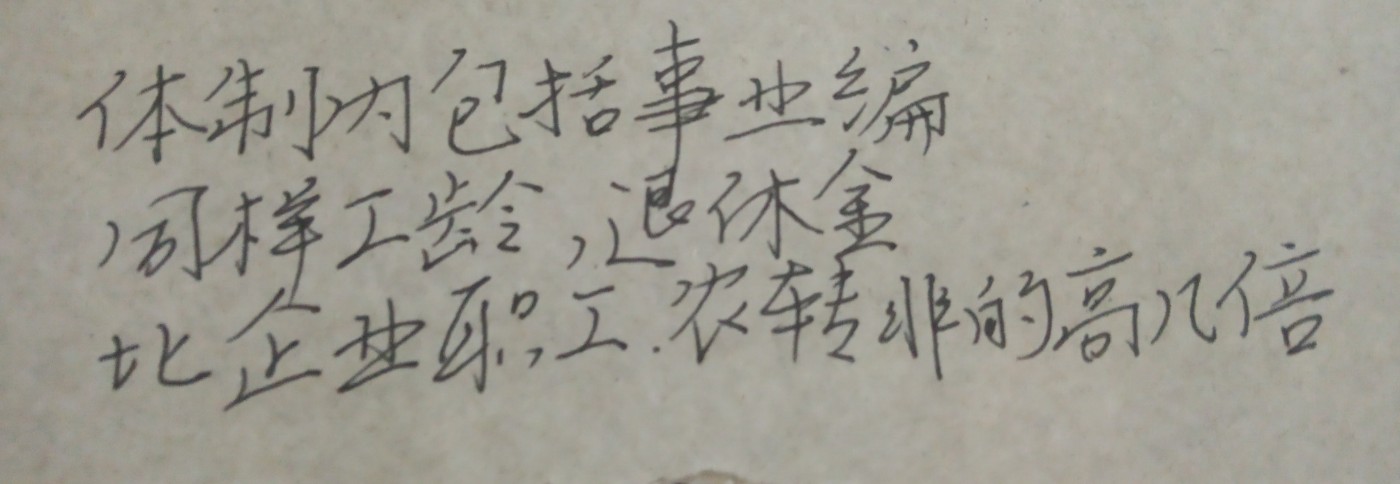 体制内包括事业编
同样工龄,退休金
比企业职工.农转非的高几倍